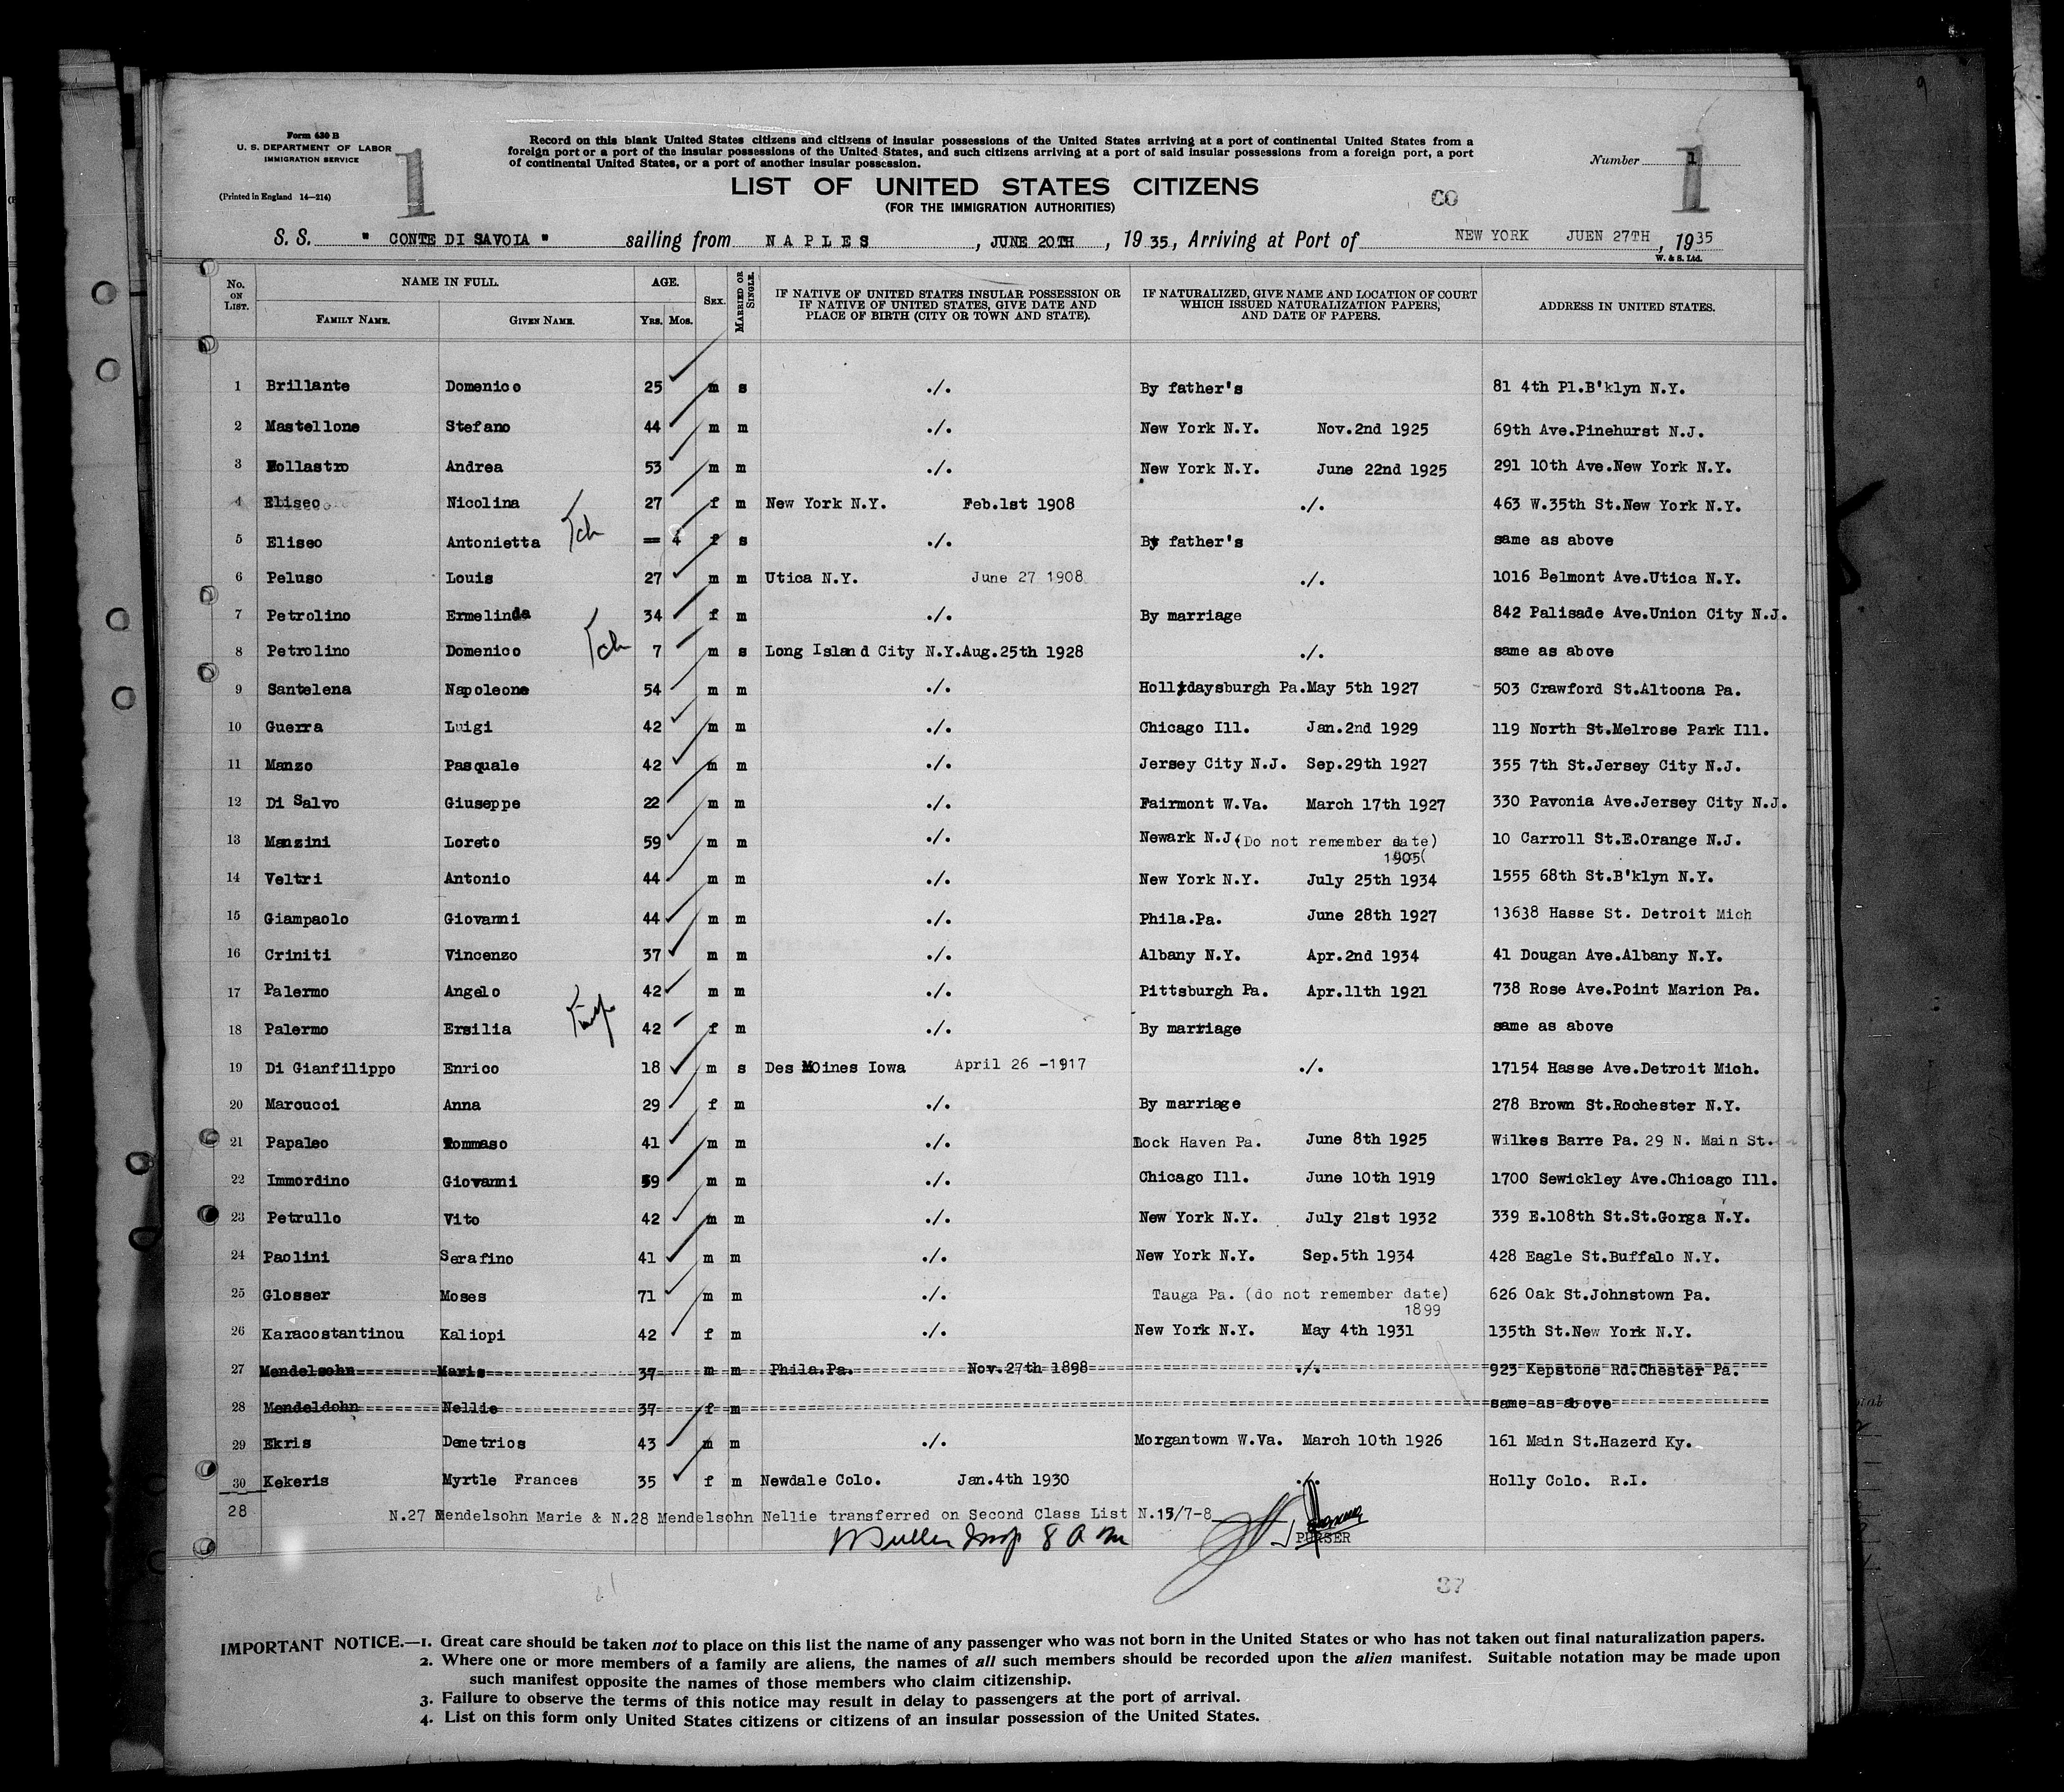 Form 630 B
U. S. DEPARTMENT OF LABOR
IMMIGRATION SERVICE
(Printed in England 14—214)
1
Record on this blank United States citizens and citizens of insular possessions of the United States arriving at a port of continental United States from a
foreign port or a port of the insular possessions of the United States, and such citizens arriving at a port of said insular possessions from a foreign port, a port
of continental United States, or a port of another insular possession.
Number 1
1
LIST OF UNITED STATES CITIZENS
(FOR THE IMMIGRATION AUTHORITIES)
CO
S. S. " CONTE DI SAVOIA " sailing from NAPLES , JUNE 20TH , 19 35, Arriving at Port of NEW YORK JUEN 27TH , 1935
W. & S. Ltd.
No. ON LIST. NAME IN FULL. AGE. SEX. MARRIED OR SINGLE. IF NATIVE OF UNITED STATES INSULAR POSSESSION OR IF NATIVE OF UNITED STATES, GIVE DATE AND PLACE OF BIRTH (CITY OR TOWN AND STATE). IF NATURALIZED, GIVE NAME AND LOCATION OF COURT WHICH ISSUED NATURALIZATION PAPERS, AND DATE OF PAPERS. ADDRESS IN UNITED STATES.
FAMILY NAME. GIVEN NAME. Yrs. Mos.
1 Brillante Domenico 25 m s ./. By father's 81 4th Pl.B'klyn N.Y.
2 Mastellone Stefano 44 m m ./. New York N.Y. Nov.2nd 1925 69th Ave.Pinehurst N.J.
3 Mollastro Andrea 53 m m ./. New York N.Y. June 22nd 1925 291 10th Ave.New York N.Y.
4 Eliseo Nicolina 27 f m New York N.Y. Feb.1st 1908 ./. 463 W.35th St.New York N.Y.
5 Eliseo Antonietta — 4 f s ./. By father's same as above
6 Peluso Louis 27 m m Utica N.Y. June 27 1908 ./. 1016 Belmont Ave.Utica N.Y.
7 Petrolino Ermelinda 34 f m ./. By marriage 842 Palisade Ave.Union City N.J.
8 Petrolino Domenico 7 m s Long Island City N.Y.Aug.25th 1928 ./. same as above
9 Santelena Napoleone 54 m m ./. Hollydaysburgh Pa.May 5th 1927 503 Crawford St.Altoona Pa.
10 Guerra Luigi 42 m m ./. Chicago Ill. Jan.2nd 1929 119 North St.Melrose Park Ill.
11 Manzo Pasquale 42 m m ./. Jersey City N.J. Sep.29th 1927 355 7th St.Jersey City N.J.
12 Di Salvo Giuseppe 22 m m ./. Fairmont W.Va. March 17th 1927 330 Pavonia Ave.Jersey City N.J.
13 Manzini Loreto 59 m m ./. Newark N.J.(Do not remember date) 10 Carroll St.E.Orange N.J.
1905(
14 Veltri Antonio 44 m m ./. New York N.Y. July 25th 1934 1555 68th St.B'klyn N.Y.
15 Giampaolo Giovanni 44 m m ./. Phila.Pa. June 28th 1927 13638 Hasse St. Detroit Mich
16 Criniti Vincenzo 37 m m ./. Albany N.Y. Apr.2nd 1934 41 Dougan Ave.Albany N.Y.
17 Palermo Angelo 42 m m ./. Pittsburgh Pa. Apr.11th 1921 738 Rose Ave.Point Marion Pa.
18 Palermo Ersilia 42 f m ./. By marriage same as above
19 Di Gianfilippo Enrico 18 m s Des MOines Iowa April 26 -1917 ./. 17154 Hasse Ave.Detroit Mich.
20 Marcucci Anna 29 f m ./. By marriage 278 Brown St.Rochester N.Y.
21 Papaleo Tommaso 41 m m ./. Lock Haven Pa. June 8th 1925 Wilkes Barre Pa. 29 N. Main St.
22 Immordino Giovanni 59 m m ./. Chicago Ill. June 10th 1919 1700 Sewickley Ave.Chicago Ill.
23 Petrullo Vito 42 m m ./. New York N.Y. July 21st 1932 339 E.108th St.St.Gorga N.Y.
24 Paolini Serafino 41 m m ./. New York N.Y. Sep.5th 1934 428 Eagle St.Buffalo N.Y.
25 Glosser Moses 71 m m ./. Tauga Pa. (do not remember date) 626 Oak St.Johnstown Pa.
1899
26 Karacostantinou Kaliopi 42 f m ./. New York N.Y. May 4th 1931 135th St.New York N.Y.
27 Mendelsohn Maris 37 m m Phila.Pa. Nov.27th 1898 ./. 923 Kepstone Rd.Chester Pa.
28 Mendeldohn Nellie 37 f m same as above
29 Ekris Demetrios 43 m m ./. Morgantown W.Va. March 10th 1926 161 Main St.Hazerd Ky.
30 Kekeris Myrtle Frances 35 f m Newdale Colo. Jan.4th 1930 ./. Holly Colo. R.I.
28
N.27 Mendelsohn Marie & N.28 Mendelsohn Nellie transferred on Second Class List N.15/7-8
Insp 8 A m
PURSER
37
IMPORTANT NOTICE.—1. Great care should be taken not to place on this list the name of any passenger who was not born in the United States or who has not taken out final naturalization papers.
2. Where one or more members of a family are aliens, the names of all such members should be recorded upon the alien manifest. Suitable notation may be made upon
such manifest opposite the names of those members who claim citizenship.
3. Failure to observe the terms of this notice may result in delay to passengers at the port of arrival.
4. List on this form only United States citizens or citizens of an insular possession of the United States.